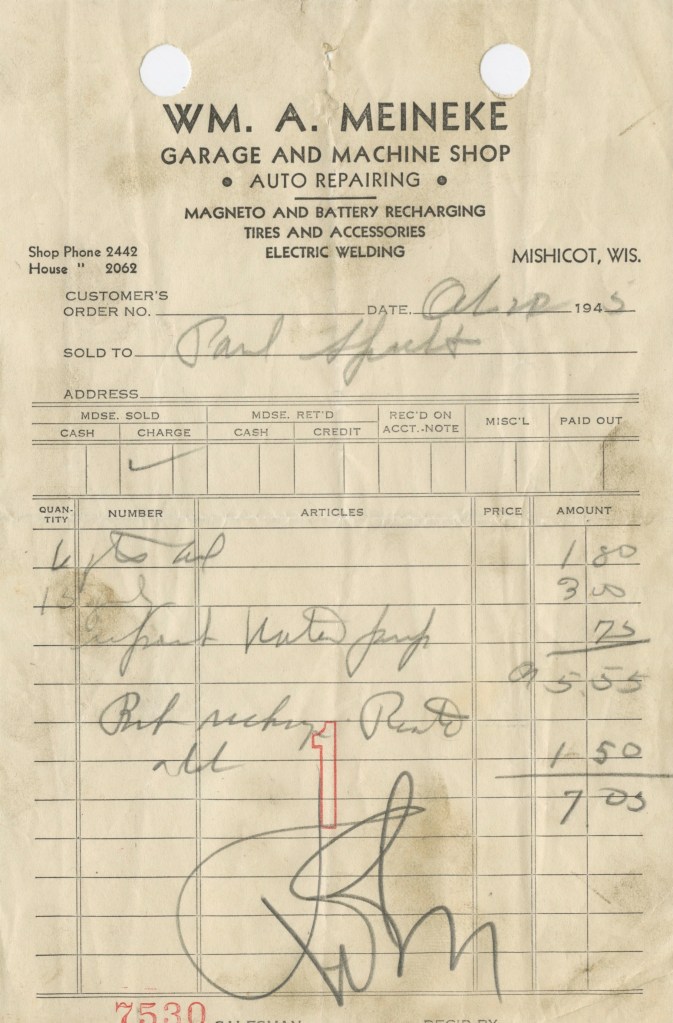 WM. A. MEINEKE
GARAGE AND MACHINE SHOP
• AUTO REPAIRING •
MAGNETO AND BATTERY RECHARGING
TIRES AND ACCESSORIES
ELECTRIC WELDING
Shop Phone 2442
House " 2062
MISHICOT, WIS.
CUSTOMER'S
ORDER NO. DATE, 1945
SOLD TO Paul
ADDRESS
MDSE. SOLD MDSE. RET'D REC'D ON ACCT.-NOTE MISC'L PAID OUT
CASH CHARGE CASH CREDIT
QUANTITY NUMBER ARTICLES PRICE AMOUNT
6 qts 1 80
15 3 00
Water pump 75
5.55
Bat recharge
1 50
7 05
1
7530 SALESMAN REC'D BY